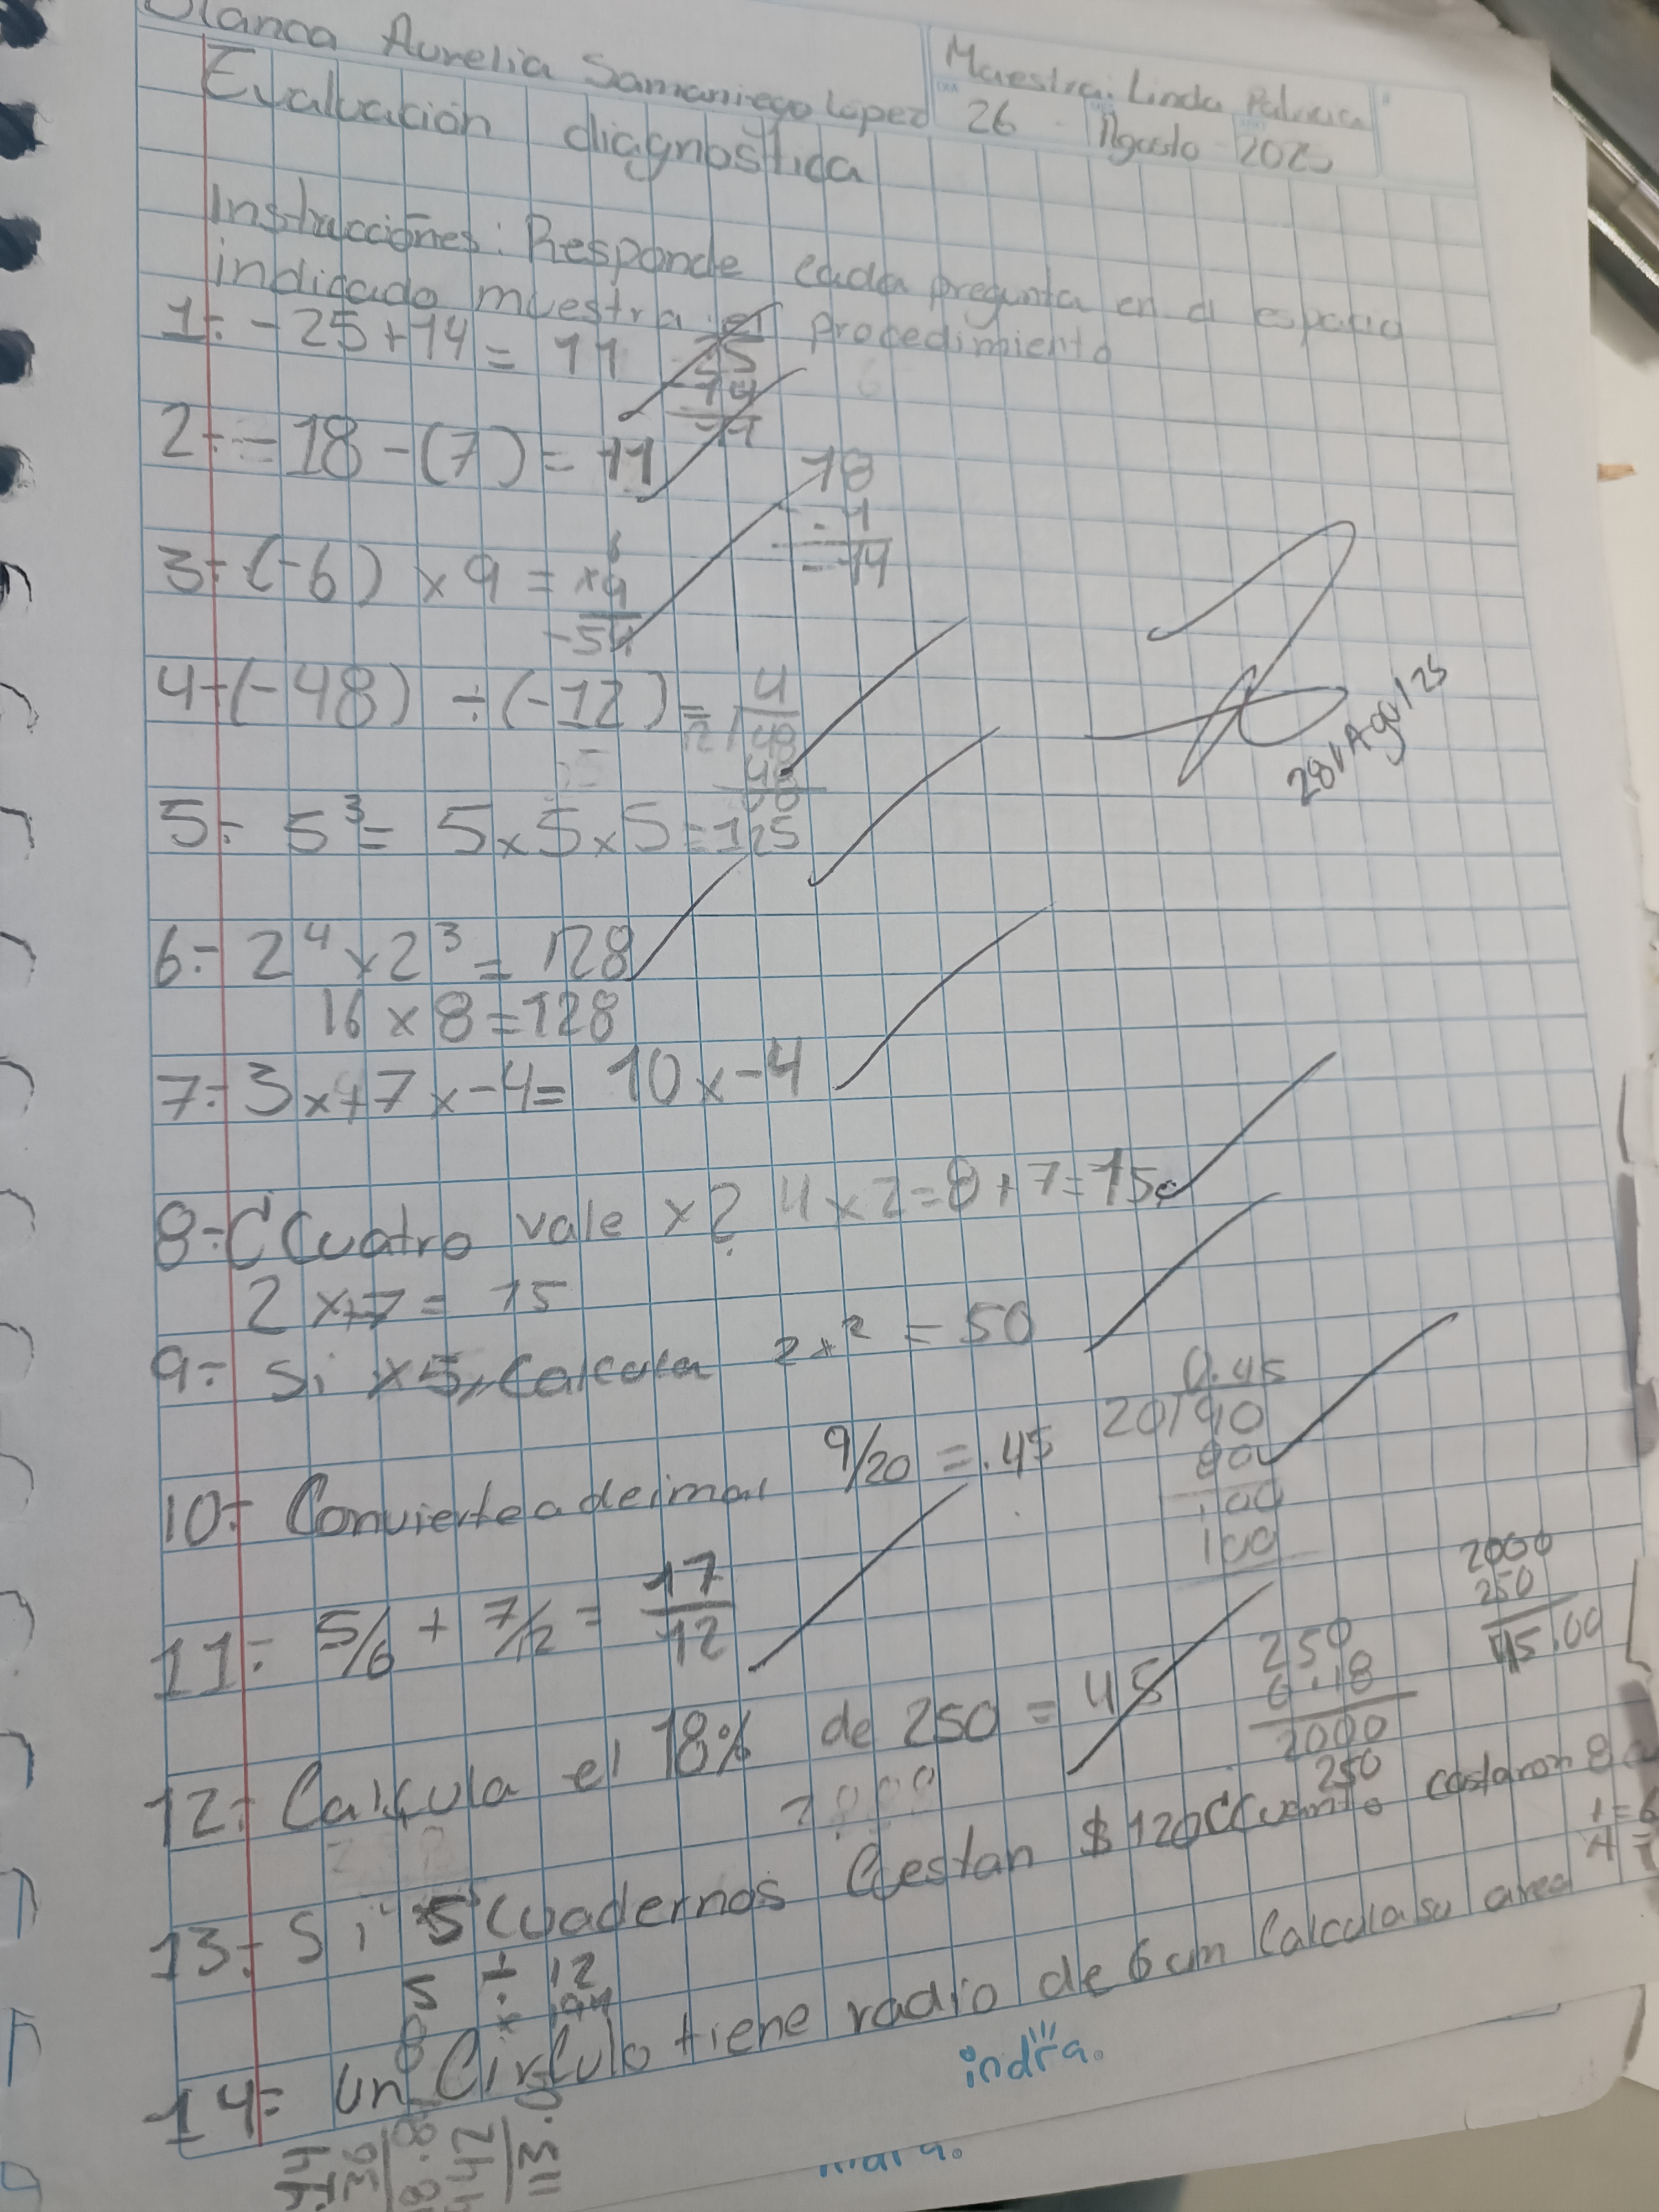 Aurelia Samaniego López
Maestra: Linda Patricia
26 - Agosto 2025
Evaluación diagnóstica
Instrucciones: Responde cada pregunta en el espacio
indicado muestra el procedimiento
1- -25+14= 11
25
-14
11
2- -18-(7)= 11
18
-4
-14
3- (-6) x 9 =
6
x9
-54
4- (-48) ÷ (-12) =
4
12/48
48
00
5- 5³= 5x5x5=125
28/Ago/25
6- 2⁴x2³= 128
16x8=128
7- 3x+7x-4= 10x-4
8- ¿Cuatro vale x? 4x2=8+7=15
2x+7= 15
9- Si x5, Calcula 2x² = 50
10- Convierte a deimal 9/20 =.45
0.45
20/90
80
100
100
11- 5/6 + 7/12 = 17/12
12- Calcula el 18% de 250 = 45
250
0.18
2000
250
2000
250
45.00
13- Si 5 Cuadernos Cestan $120 ¿Cuanto costaron 8
5 ÷ 12
8
14- Un Circulo tiene radio de 6 cm Calcula su area
indra.